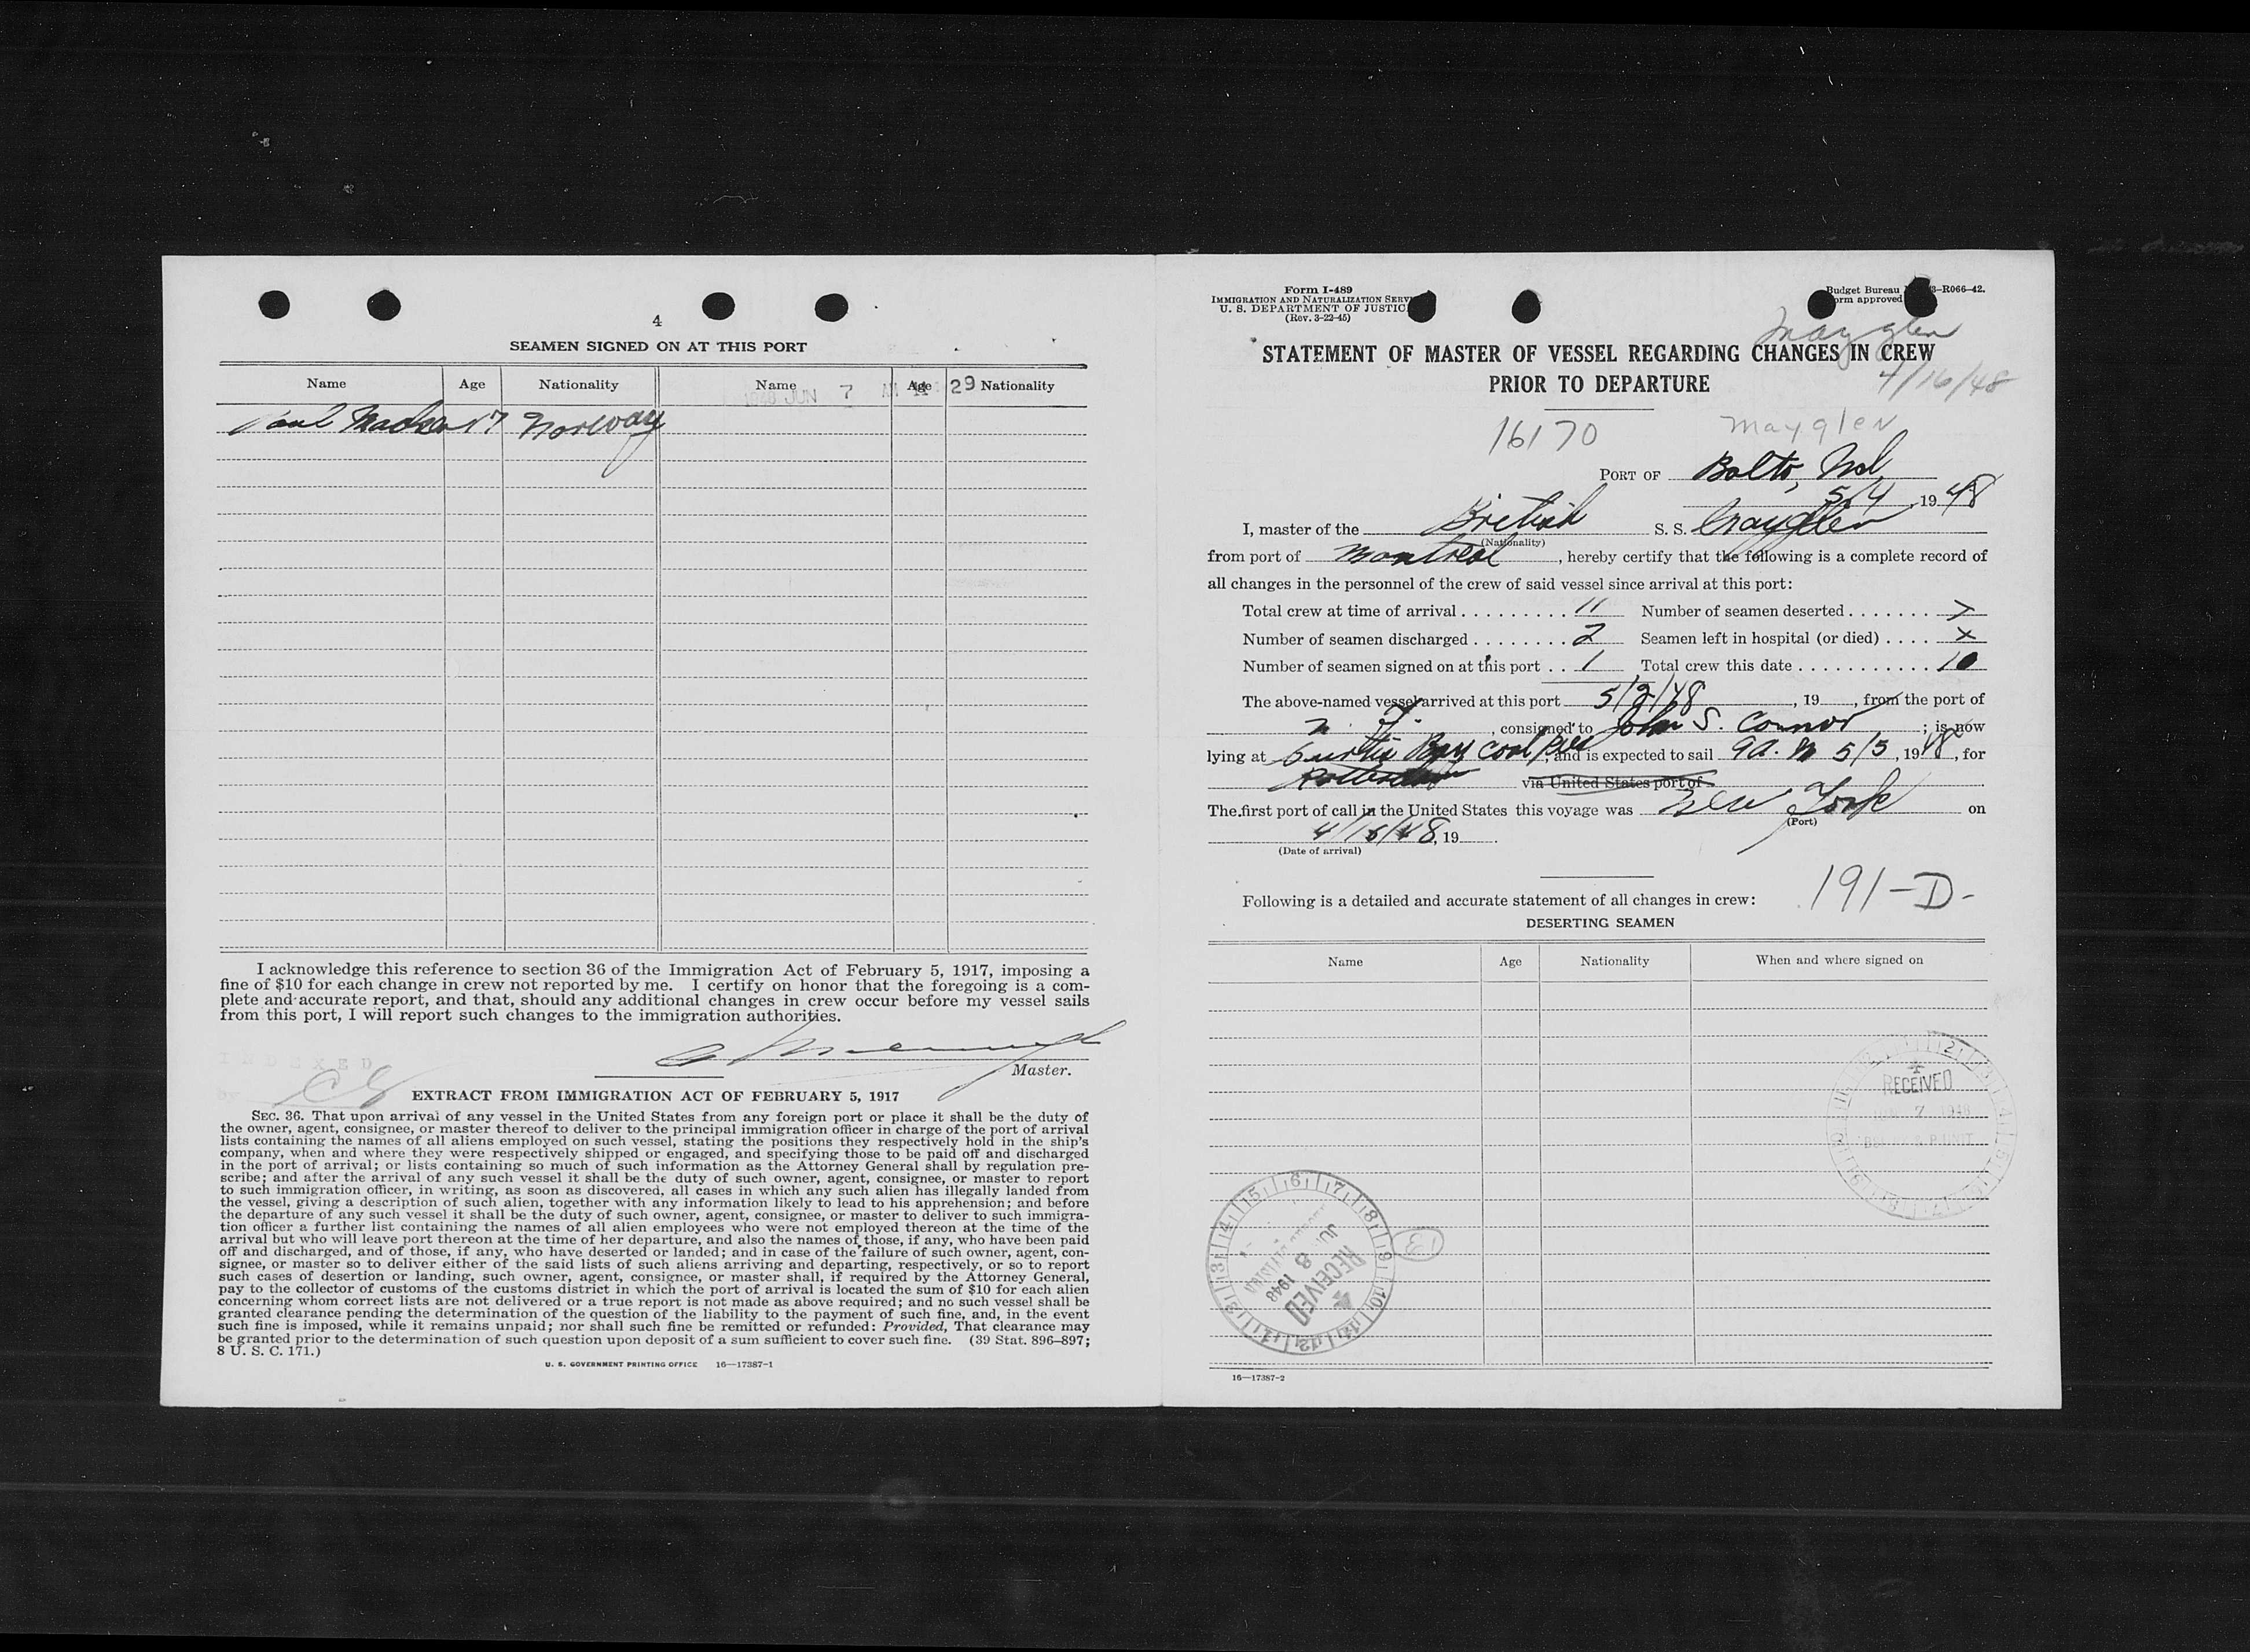 4
SEAMEN SIGNED ON AT THIS PORT
Name Age Nationality Name Age Nationality
1948 JUN 7 AM 11 29
Paul 17 Norway
I acknowledge this reference to section 36 of the Immigration Act of February 5, 1917, imposing a
fine of $10 for each change in crew not reported by me. I certify on honor that the foregoing is a com-
plete and accurate report, and that, should any additional changes in crew occur before my vessel sails
from this port, I will report such changes to the immigration authorities.
Master.
INDEXED
by
EXTRACT FROM IMMIGRATION ACT OF FEBRUARY 5, 1917
SEC. 36. That upon arrival of any vessel in the United States from any foreign port or place it shall be the duty of
the owner, agent, consignee, or master thereof to deliver to the principal immigration officer in charge of the port of arrival
lists containing the names of all aliens employed on such vessel, stating the positions they respectively hold in the ship's
company, when and where they were respectively shipped or engaged, and specifying those to be paid off and discharged
in the port of arrival; or lists containing so much of such information as the Attorney General shall by regulation pre-
scribe; and after the arrival of any such vessel it shall be the duty of such owner, agent, consignee, or master to report
to such immigration officer, in writing, as soon as discovered, all cases in which any such alien has illegally landed from
the vessel, giving a description of such alien, together with any information likely to lead to his apprehension; and before
the departure of any such vessel it shall be the duty of such owner, agent, consignee, or master to deliver to such immigra-
tion officer a further list containing the names of all alien employees who were not employed thereon at the time of the
arrival but who will leave port thereon at the time of her departure, and also the names of those, if any, who have been paid
off and discharged, and of those, if any, who have deserted or landed; and in case of the failure of such owner, agent, con-
signee, or master so to deliver either of the said lists of such aliens arriving and departing, respectively, or so to report
such cases of desertion or landing, such owner, agent, consignee, or master shall, if required by the Attorney General,
pay to the collector of customs of the customs district in which the port of arrival is located the sum of $10 for each alien
concerning whom correct lists are not delivered or a true report is not made as above required; and no such vessel shall be
granted clearance pending the determination of the question of the liability to the payment of such fine, and, in the event
such fine is imposed, while it remains unpaid; nor shall such fine be remitted or refunded: Provided, That clearance may
be granted prior to the determination of such question upon deposit of a sum sufficient to cover such fine. (39 Stat. 896–897;
8 U. S. C. 171.)
U. S. GOVERNMENT PRINTING OFFICE 16—17387-1
Form I-489
IMMIGRATION AND NATURALIZATION SERV
U. S. DEPARTMENT OF JUSTIC
(Rev. 3-22-45)
Budget Bureau 3-R066-42.
orm approved
Mayglen
STATEMENT OF MASTER OF VESSEL REGARDING CHANGES IN CREW
PRIOR TO DEPARTURE
4/16/48
16170 Mayglen
PORT OF Balto, Md
5/4, 1948
I, master of the British S. S. Mayglen
(Nationality)
from port of Montreal, hereby certify that the following is a complete record of
all changes in the personnel of the crew of said vessel since arrival at this port:
Total crew at time of arrival 11 Number of seamen deserted
Number of seamen discharged 2 Seamen left in hospital (or died) x
Number of seamen signed on at this port 1 Total crew this date 10
The above-named vessel arrived at this port 5/2/48, 19, from the port of
N. Y., consigned to John S. Connor; is now
lying at Curtis Bay Coal Pier, and is expected to sail 9 A. M 5/5, 1948, for
Rotterdam via United States port of
The first port of call in the United States this voyage was New York on
(Port)
4/16/48, 19
(Date of arrival)
191-D-
Following is a detailed and accurate statement of all changes in crew:
DESERTING SEAMEN
Name Age Nationality When and where signed on
RECEIVED
7 1948
RECEIVED
JUN 8 1948
13
16—17387-2